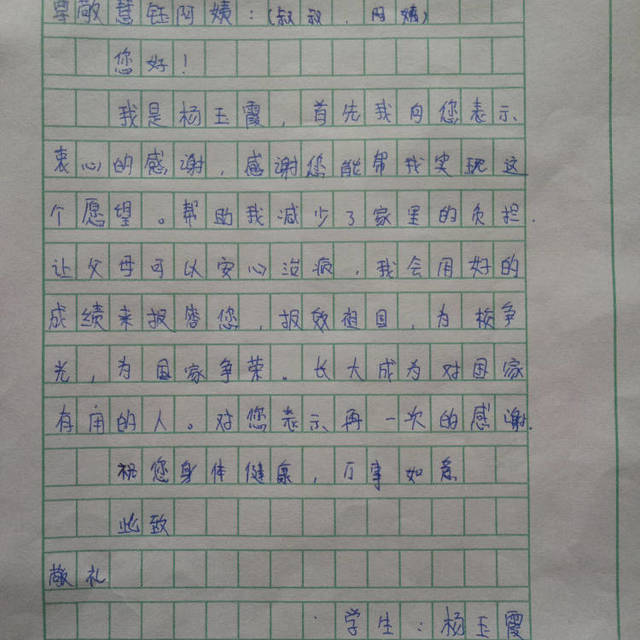 尊敬慧钰阿姨：（叔叔，阿姨）
您好！
我是杨玉霞，首先我向您表示
衷心的感谢，感谢您能帮我实现这
个愿望。帮助我减少了家里的负担.
让父母可以安心治病，我会用好的
成绩来报答您，报效祖国，为校争
光，为国家争荣。长大成为对国家
有用的人。对您表示再一次的感谢.
祝您身体健康，万事如意
此致
敬礼
学生：杨玉霞